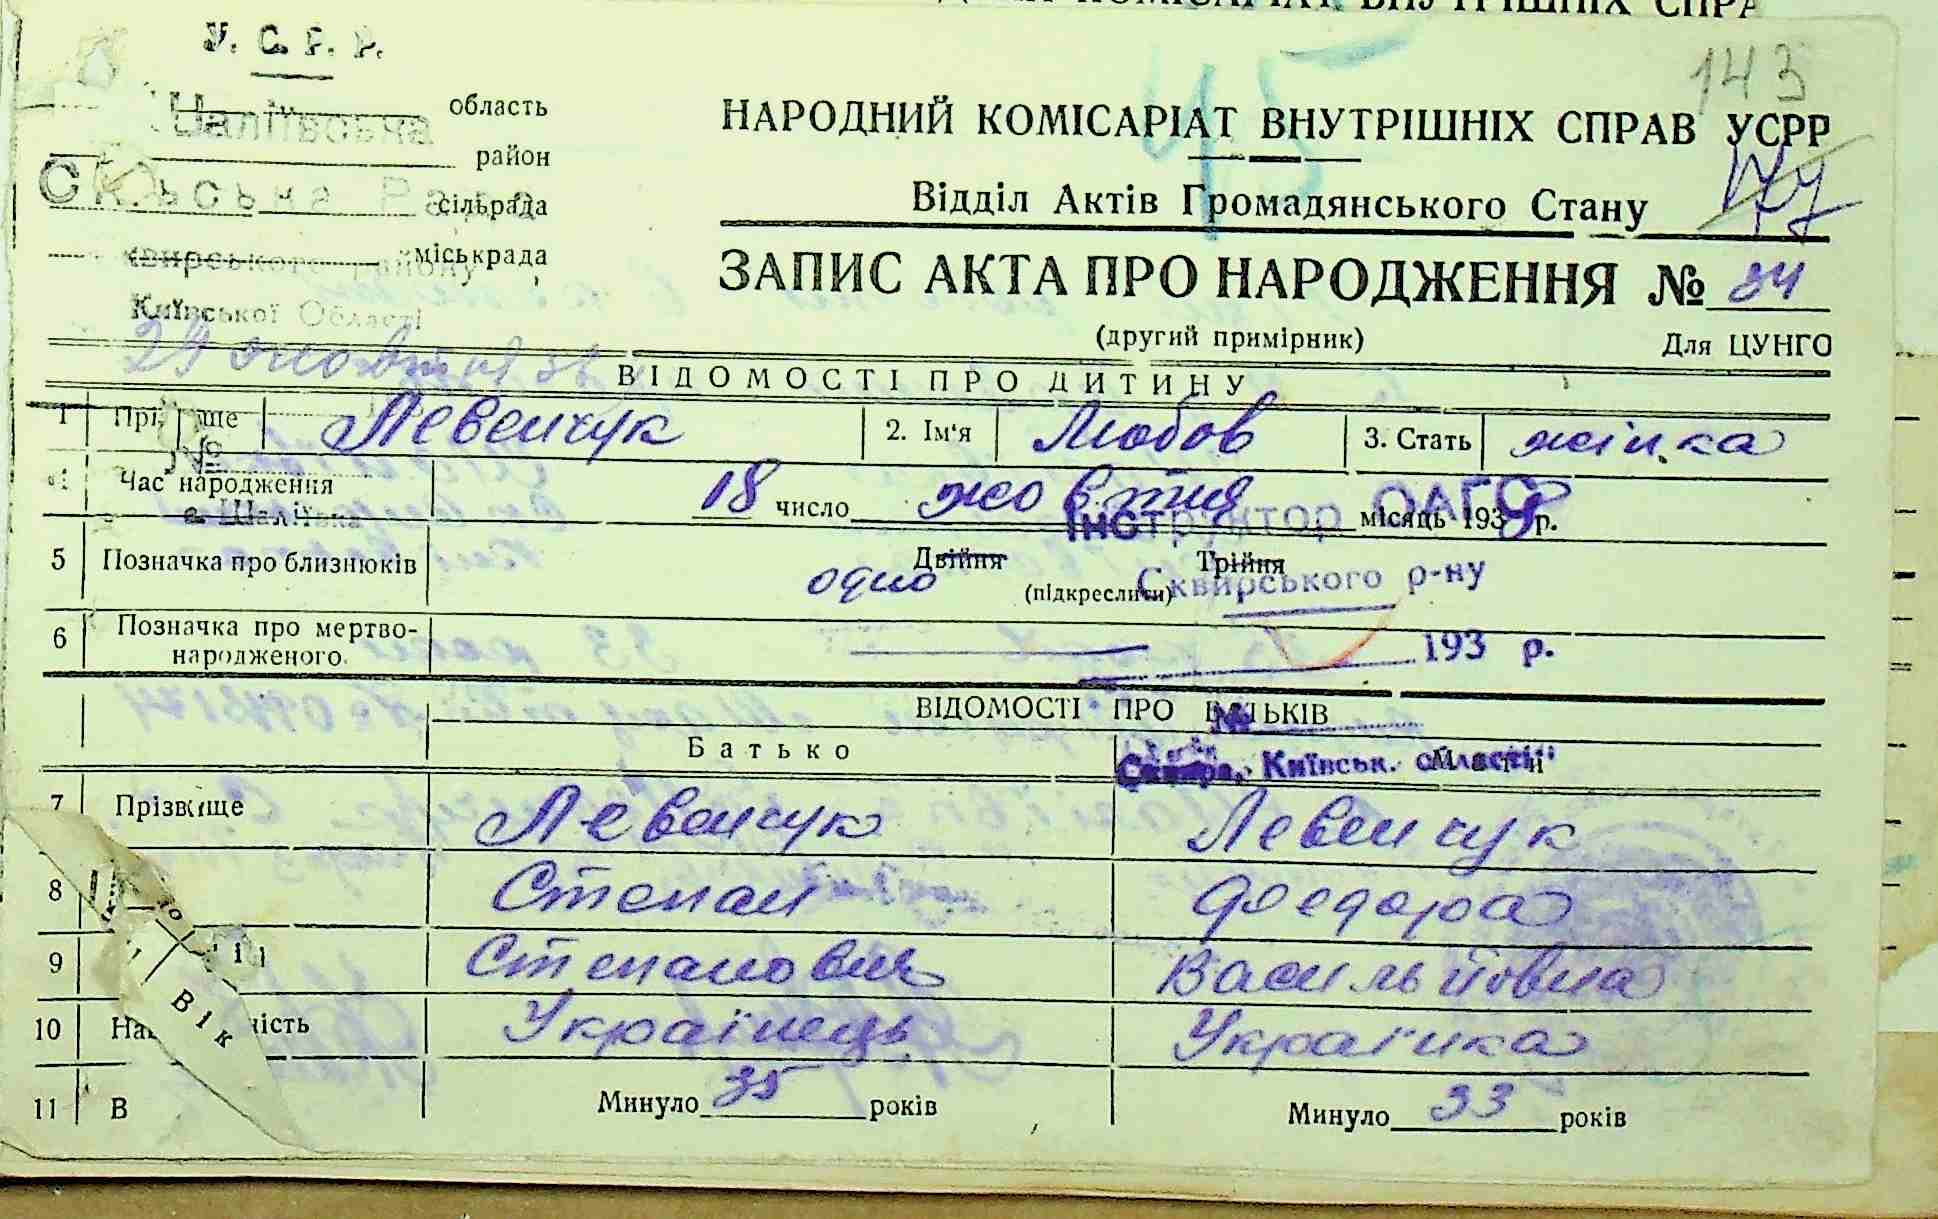 У. С. Р. Р.
143
45
область
Шаліївська
район
Рада
сільрада
міськрада
Сквирського району
Київської Області
НАРОДНИЙ КОМІСАРІАТ ВНУТРІШНІХ СПРАВ УСРР
Відділ Актів Громадянського Стану
ЗАПИС АКТА ПРО НАРОДЖЕННЯ № 34
(другий примірник) Для ЦУНГО
29 жовтня 38
ВІДОМОСТІ ПРО ДИТИНУ
1 Прі ще Левенчук 2. Ім'я Любов 3. Стать жінка
Час народження 18 число жовтня місяць 1938 р.
с. Шаліївка
Інструктор ОАГС
5 Позначка про близнюків одно Двійня Трійня
(підкреслити)
Сквирського р-ну
6 Позначка про мертво-
народженого.
193 р.
ВІДОМОСТІ ПРО БАТЬКІВ
№
Батько Мати
Сквира, Київськ. області
7 Прізвище Левенчук Левенчук
8 Степан Федора
9 Степанович Васильївна
10 На ність Українець Українка
Вік
11 В Минуло 35 років Минуло 33 років